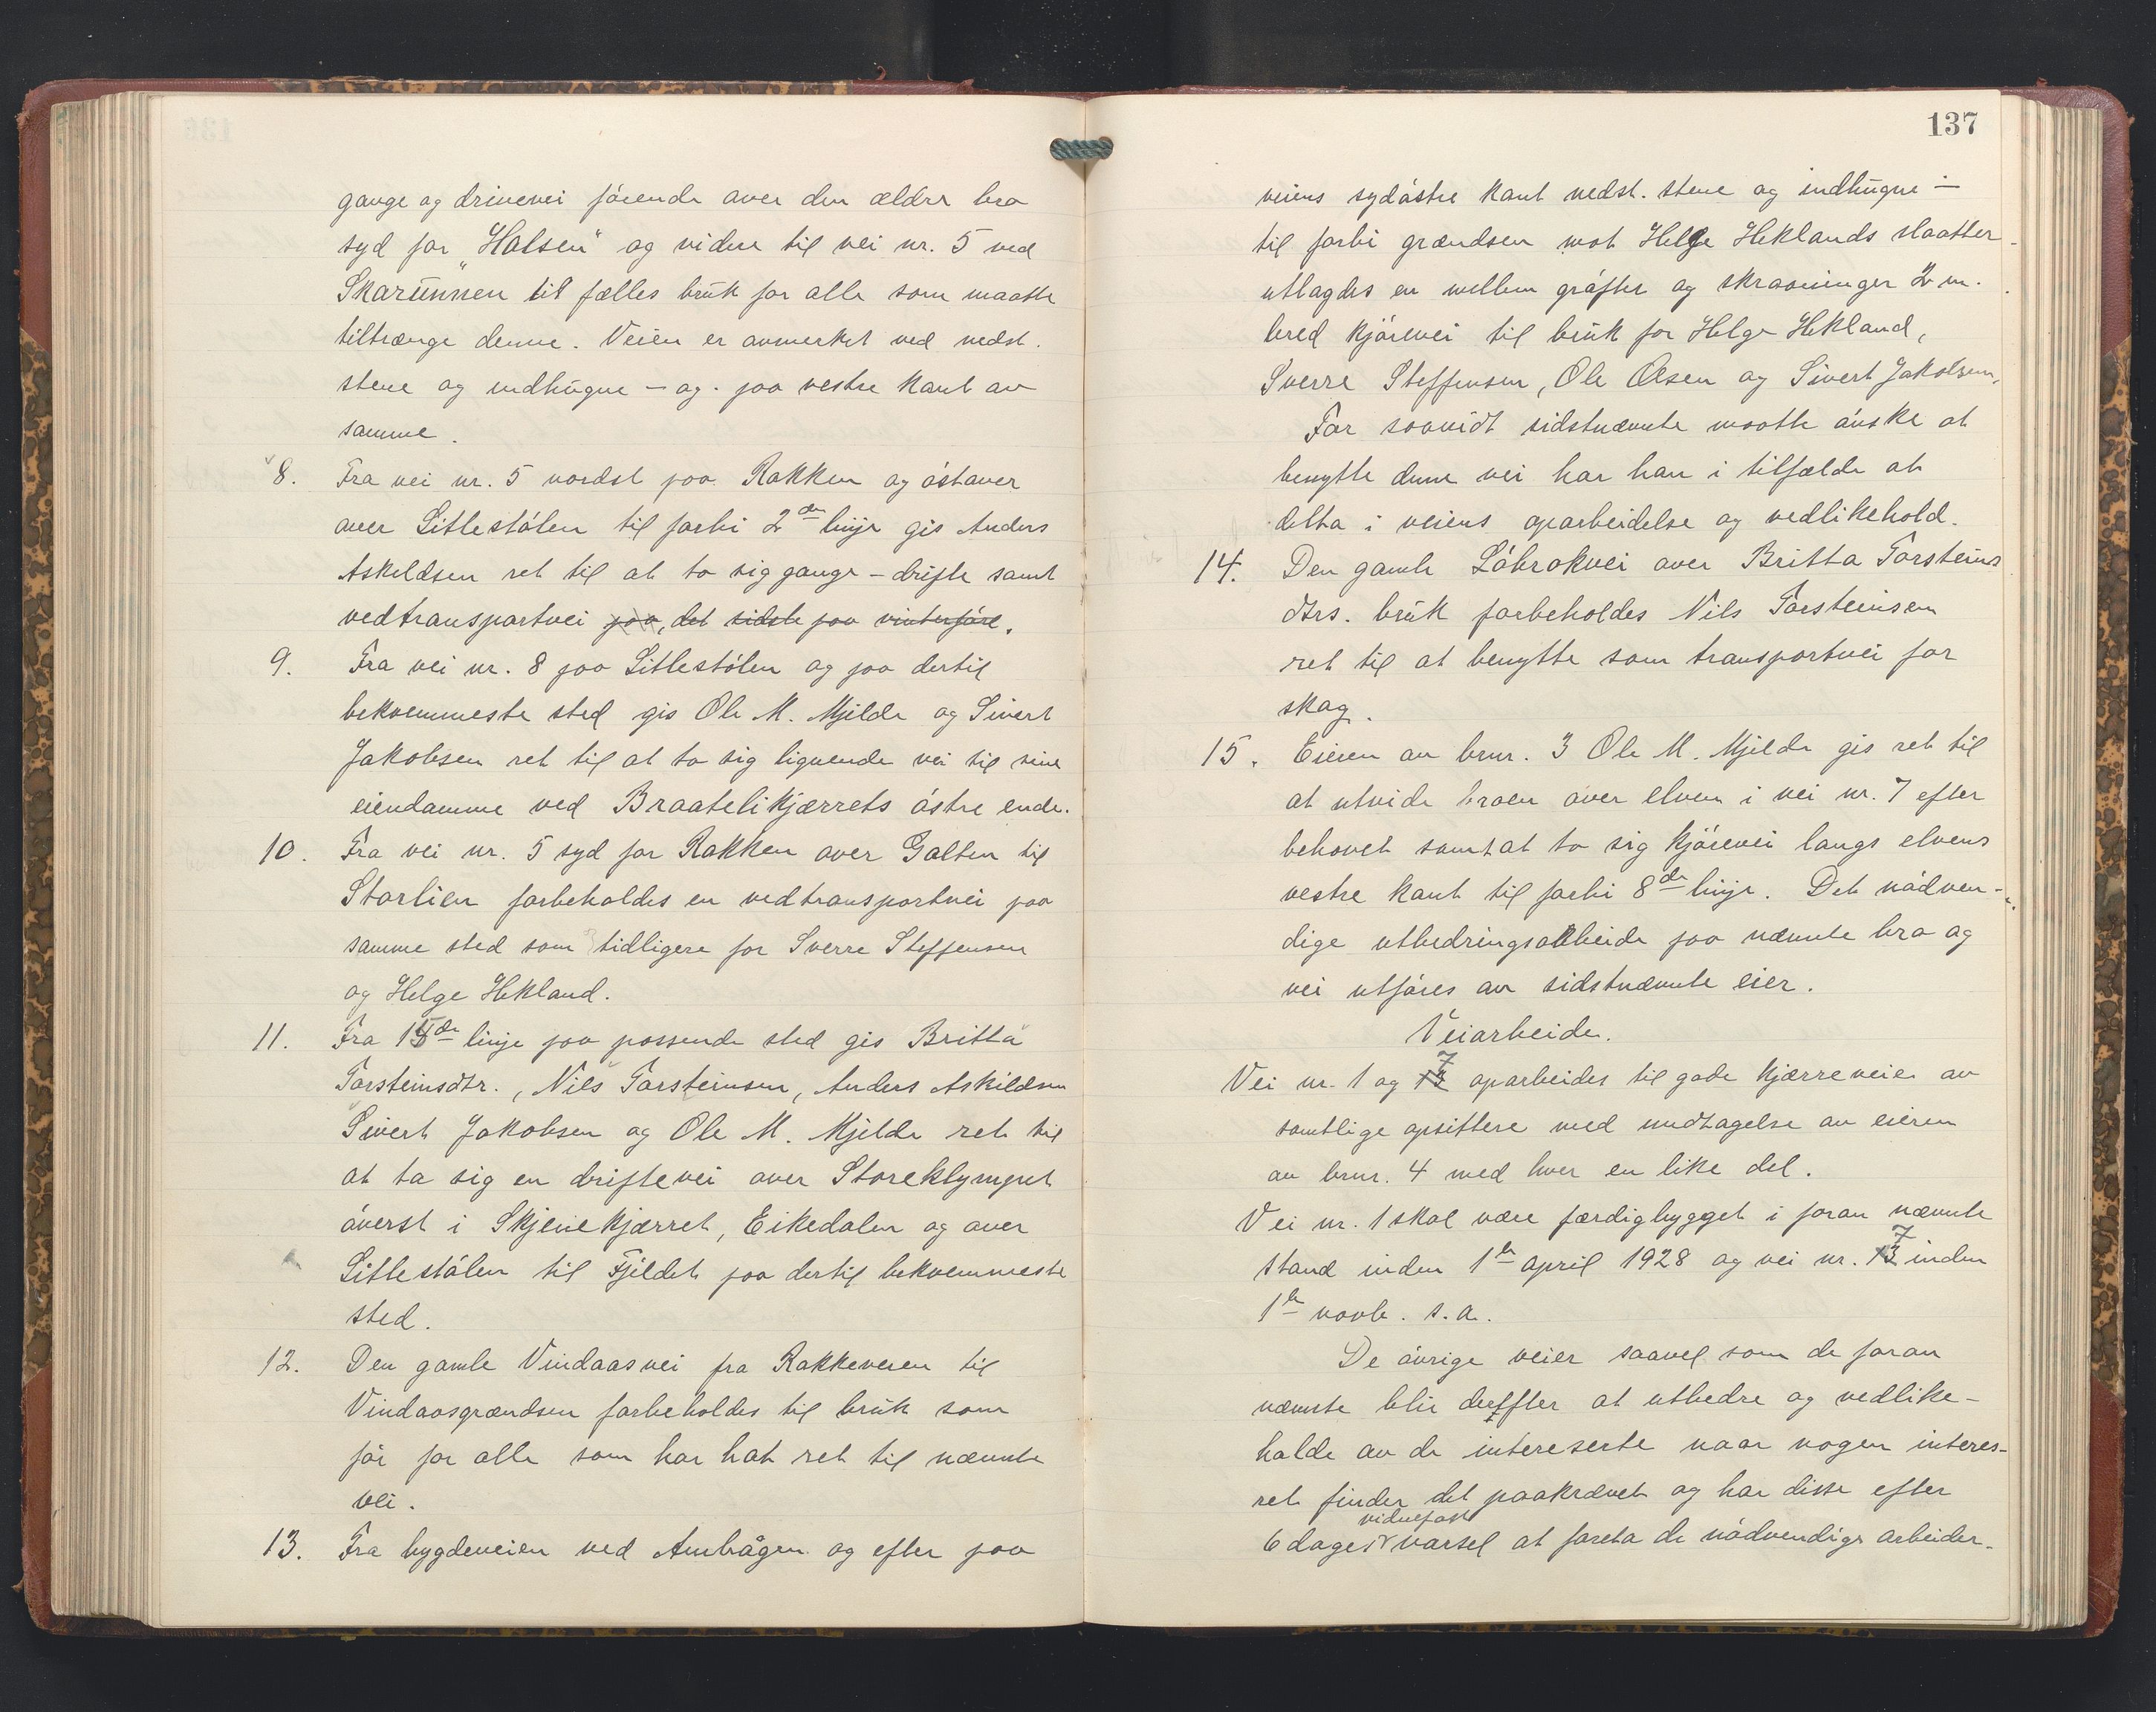 gange og drivevei førende over den ældre bro
syd for „Halsen“ og videre til vei nr. 5 ved
Skarunnen til fælles bruk for alle som maatte
tiltrænge denne. Veien er avmerket ved nedst.
stene og indhugne – og paa vestre kant av
samme.
8. Fra vei nr. 5 nordst paa Rakken og østover
over Litlestølen til forbi 2den linje gis Anders
Askeldsen ret til at ta sig gange – drifte samt
vedtransportvei paa, det sidste paa vinterføre.
9. Fra vei nr. 8 paa Litlestølen og paa dertil
bekvemmeste sted gis Ole M. Mjelde og Sivert
Jakobsen ret til at ta sig lignende vei til sine
eiendomme ved Braatelikjærrets østre ende.
10. Fra vei nr. 5 syd for Rakken over Galten til
Storlien forbeholdes en vedtransportvei paa
samme sted som tidligere for Sverre Steffensen
og Helge Hekland.
11. Fra 15de linje paa passende sted gis Britta
Torsteinsdtr., Nils Torsteinsen, Anders Askildsen
Sivert Jakobsen og Ole M. Mjelde ret til
at ta sig en driftevei over Storeklympet
øverst i Skjenekjærret, Eikedalen og over
Litlestølen til Fjeldet paa dertil bekvemmeste
sted.
12. Den gamle Vindaasvei fra Rakkeveien til
Vindaasgrændsen forbeholdes til bruk som
før for alle som har hat ret til nævnte
vei.
13. Fra bygdeveien ved Ambågen og efter paa
137
veiens sydøstre kant nedst. stene og indhugne –
til forbi grændsen mot Helge Heklands slaatter
utlagdes en mellem grøfter og skraaninger 2 m.
bred kjørevei til bruk for Helge Hekland,
Sverre Steffensen, Ole Olsen og Sivert Jakobsen.
For saavidt sidstnævnte maatte ønske at
benytte denne vei har han i tilfælde at
delta i veiens oparbeidelse og vedlikehold.
14. Den gamleLøbrokvei over Britta Torsteins
dtrs. bruk forbeholdes Nils Torsteinsen
ret til at benytte som transportvei for
skog.
15. Eieren av brnr. 3 Ole M. Mjelde gis ret til
at utvide broen over elven i vei nr. 7 efter
behovet samt at ta sig kjørevei langs elvens
vestre kant til forbi 8de linje. Det nødven-
dige utbedringsarbeide paa nævnte bro og
vei utføres av sidstnævnte eier.
Veiarbeide.
Vei nr. 1 og 13 7 oparbeides til gode kjærreveier av
samtlige opsittere med undtagelse av eieren
av brnr. 4 med hver en like del.
Vei nr. 1 skal være færdigbygget i foran nævnte
stand inden 1ste april 1928 og vei nr. 13 7 inden
1ste novb. s.a.
De øvrige veier saavel som de foran
nævnte blir derefter at utbedre og vedlike-
holde av de intereserte naar nogen interes-
ret finder det paakrævet og har disse efter
6 dages vidnefast varsel at foreta de nødvendige arbeider.